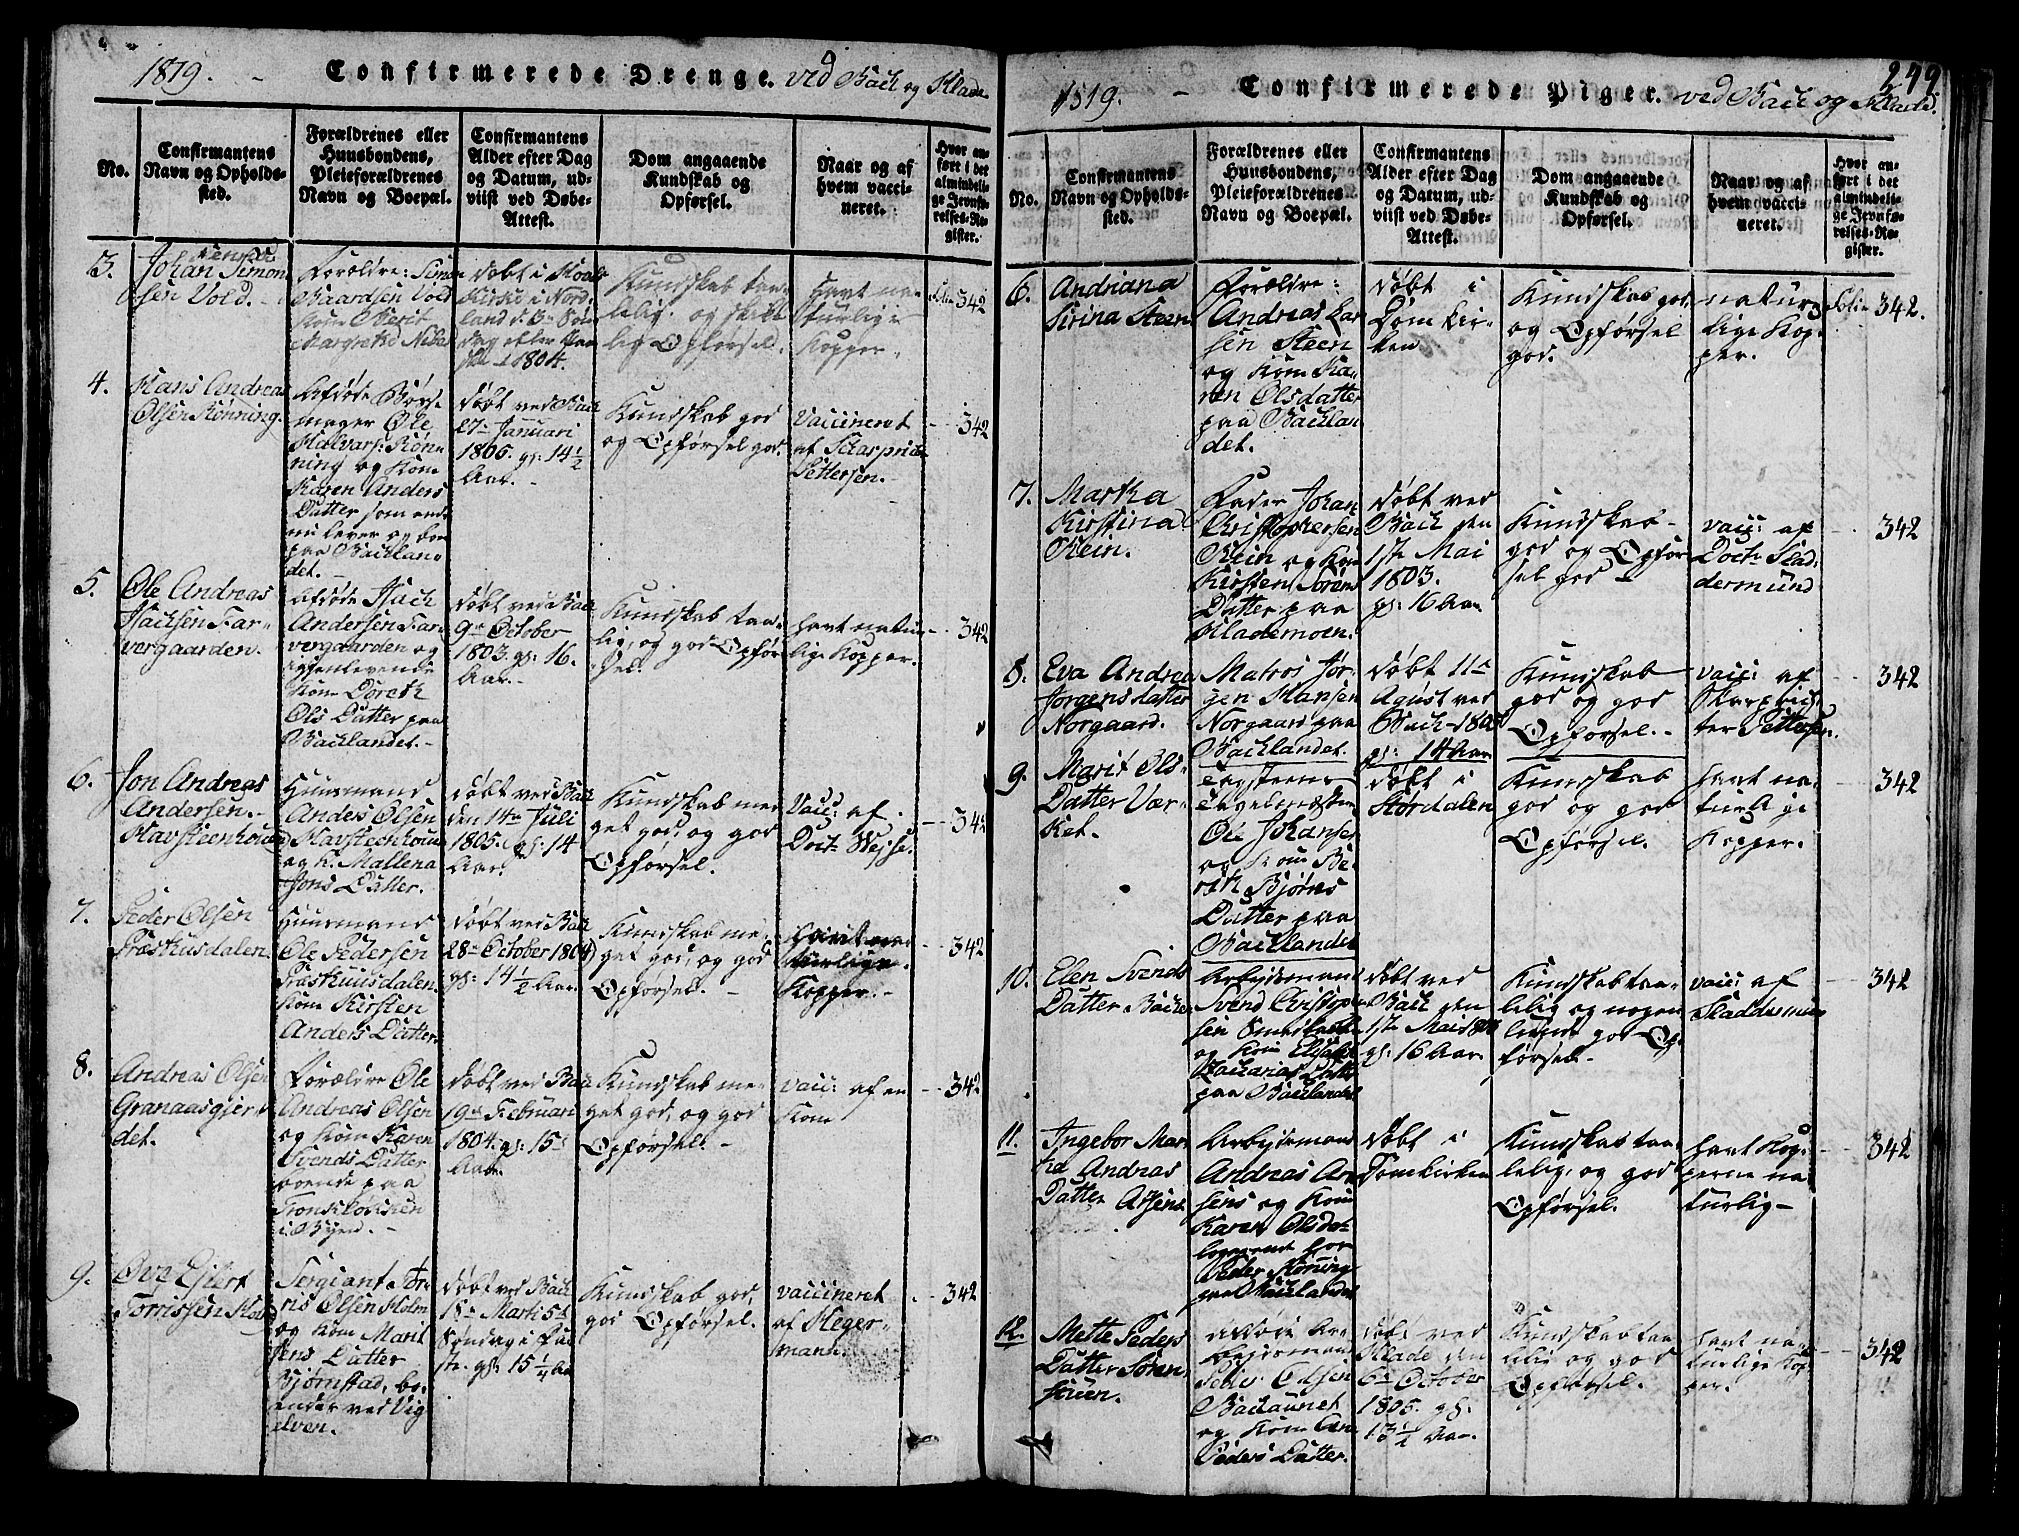 1819. - Confirmerede Drenge. ved Bach og Klade
No.
Confirmantens
Navn og Opholds-
sted.
Forældrenes eller
Huusbondens,
Pleieforældrenes
Navn og Boepæl.
Confirmantens
Alder efter Dag
og Datum, ud-
viist ved Døbe-
Attest.
Dom angaaende
Kundskab og
Opførsel.
Naar og af
hvem vacci-
neret.
Hvor an-
ført i det
almindeli-
ge Jevnfø-
relses-Re-
gister.
3.
Johan Simon
sen Vold.
Forældre: Simon
Baardsen Vold
Kone Berit
Margrethe
døbt i
Kirke i Nord-
land d. 6te Søn
dag efter Paa
ske 1804.
Kundskab taa-
lelig og skikke
lig Opførsel.
havt na-
turlige
Kopper.
342
4.
Hans Andreas
Olsen Rønning.
Afdøde Børse
mager Ole
Halvors: Røn-
ning og Kone
Karen Anders
Datter som end
nu lever og boe
paa Bachlan-
det.
døbt ved Bach
27de Januari
1805. gl: 14 1/2
Aar.
Kundskab god
og Opførsel god.
vaccineret
af Skarpret
Pettersen.
342
5.
Ole Andreas
Isachsen Far-
vergaarden.
Afdøde Isach
Andersen Far-
vergaarden og
igjenlevende
Kone Doreth
Ols Datter paa
Bachlandet.
døbt ved Bach
9de October
1803. gl: 16.
Aar.
Kundskab taa-
lig, og god Opfør
sel.
havt natur-
lige Kopper.
342
6.
Jon Andreas
Andersen
Havsteenhouen
Huusmand
Anders Olsen
Havsteenhouen
og K. Mallena
Jons Datter.
døbt ved Bach
den 14de Juli
1805. gl: 14
Aar.
Kundskab me-
get god, og god
Opførsel.
vacc: af
Doct. Wesse.
342
7.
Peder Olsen
Præsthusdalen.
Huusmand
Ole Pedersen
Præsthuusdalen.
Kone Kirsten
Anders Datter.
døbt ved Bach
28de October 1804
gl: 14 1/2 Aar.
Kundskab me-
get god, og god
Opførsel.
havt na
turlige
Kopper.
342
8.
Andreas Olsen
Granaasgier
det.
Forældre Ole
Andreas Olsen
og Kone Karen
Svends Datter
boende paa
i Byen.
døbt ved Bach
19de Februari
1804. gl: 15
Aar.
Kundskab me-
get god, og god
Opførsel.
vacc: af en
Kone
342
9.
Ove Ejlert
Torrissen Holm
Sergiant Tor-
ris Olsen Holm
og Kone Marit
Jens Datter
Bjørnstad, bo-
ende ved Vig
elven.
døbt ved Bach
18de Marti 5te
Søndag i Fa
ste. gl: 15 1/4 Aar
Kundskab god,
god Opførsel.
vaccineret
af Heger-
mann.
342
1819. - Confirmerede Piger. ved Bach og Klade.
249
No.
Confirmantens
Navn og Opholds-
sted.
Forældrenes eller
Huusbondens,
Pleieforældrenes
Navn og Boepæl.
Confirmantens
Alder efter Dag
og Datum, ud-
viist ved Døbe-
Attest.
Dom angaaende
Kundskab og
Opførsel.
Naar og af
hvem vacci-
neret.
Hvor an-
ført i det
almindeli-
ge Jevnfø-
relses-Re-
gister.
6.
Andriana
Sirina Steen
Forældre:
Andreas Lar
sen Steen
og Kone Ka-
ren Olsdatter
paa Bachlan
det.
døbt i
Domkir-
ken
Kundskab god,
og Opførsel
god.
natur-
lige Kop
per.
Folie 342.
7.
Martha
Kirstina
Rein.
Fader Johan
Christophersen
Rein og Kone
Kirsten Sørens
Datter paa
Klademoen.
døbt ved
Bach den
1ste Mai
1803.
gl: 16 Aar
Kundskab
god og Opfør
sel god
vacc: af
Doct. Slad-
dermund
342
8.
Eva Andrea
Jørgensdatter
Norgaard.
Matros Jør-
gen Hansen
Norgaard paa
Bachlandet.
døbt 11te
Agust ved
Bach 1805
gl: 14 Aar
Kundskab
god og god
Opførsel.
vacc: af
Skarpret-
ter Pettersen.
342
9.
Marit Ols-
Datter Vær-
ket.
Ole Johansen
og Kone Be-
rith Bjørns
Datter paa
Bachlandet
døbt i
Størdalen
Kundskab
god og god
Opførsel.
havt na-
turlige
Kopper.
342
10.
Elen Svends
Datter Bach
Arbejdsmand
Svend Christopher
sen
og Kone Elisabet
Zacarias Datter
paa Bachlandet
døbt ved
Bach den
1ste Mai 1803
gl: 16 Aar.
Kundskab taa-
lelig og nogen
lunde god Op-
førsel.
vacc: af
Sladdermund
342
11.
Ingebor Mar
tha Andreas
Datter Arsens
Arbejdsmand
Andreas Ar-
sens og Kone
Karen Olsdat
logerende hos
Peder Rønning
paa Bachlandet
døbt i
Domkirken
Kundskab taa-
lelig, og god
Opførsel.
havt Kop-
perne na-
turlig
342
12.
Mette Peders
Datter Søren
Afdøde Ar-
bejdsmand
Peder Olsen
Bachaunet
og Kone Ane
Peders Datter.
døbt ved
Klade den
6te October
1805. gl.
13 1/2 Aar.
Kundskab taa-
lelig og god
Opførsel.
havt na-
turlige Kop
per.
342